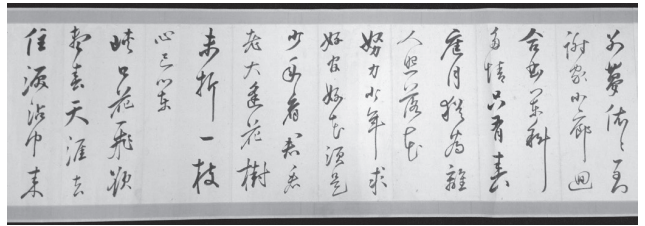 别夢依々到
謝家小廊迴
合曲闌斜
多情只有春
庭月猶為離
人照落花
努力少年求
好官好花須是
少年看君看
老大逢花樹
未折一枝
心已闌
峽口花飛欲
盡春天涯去
住淚沾巾来